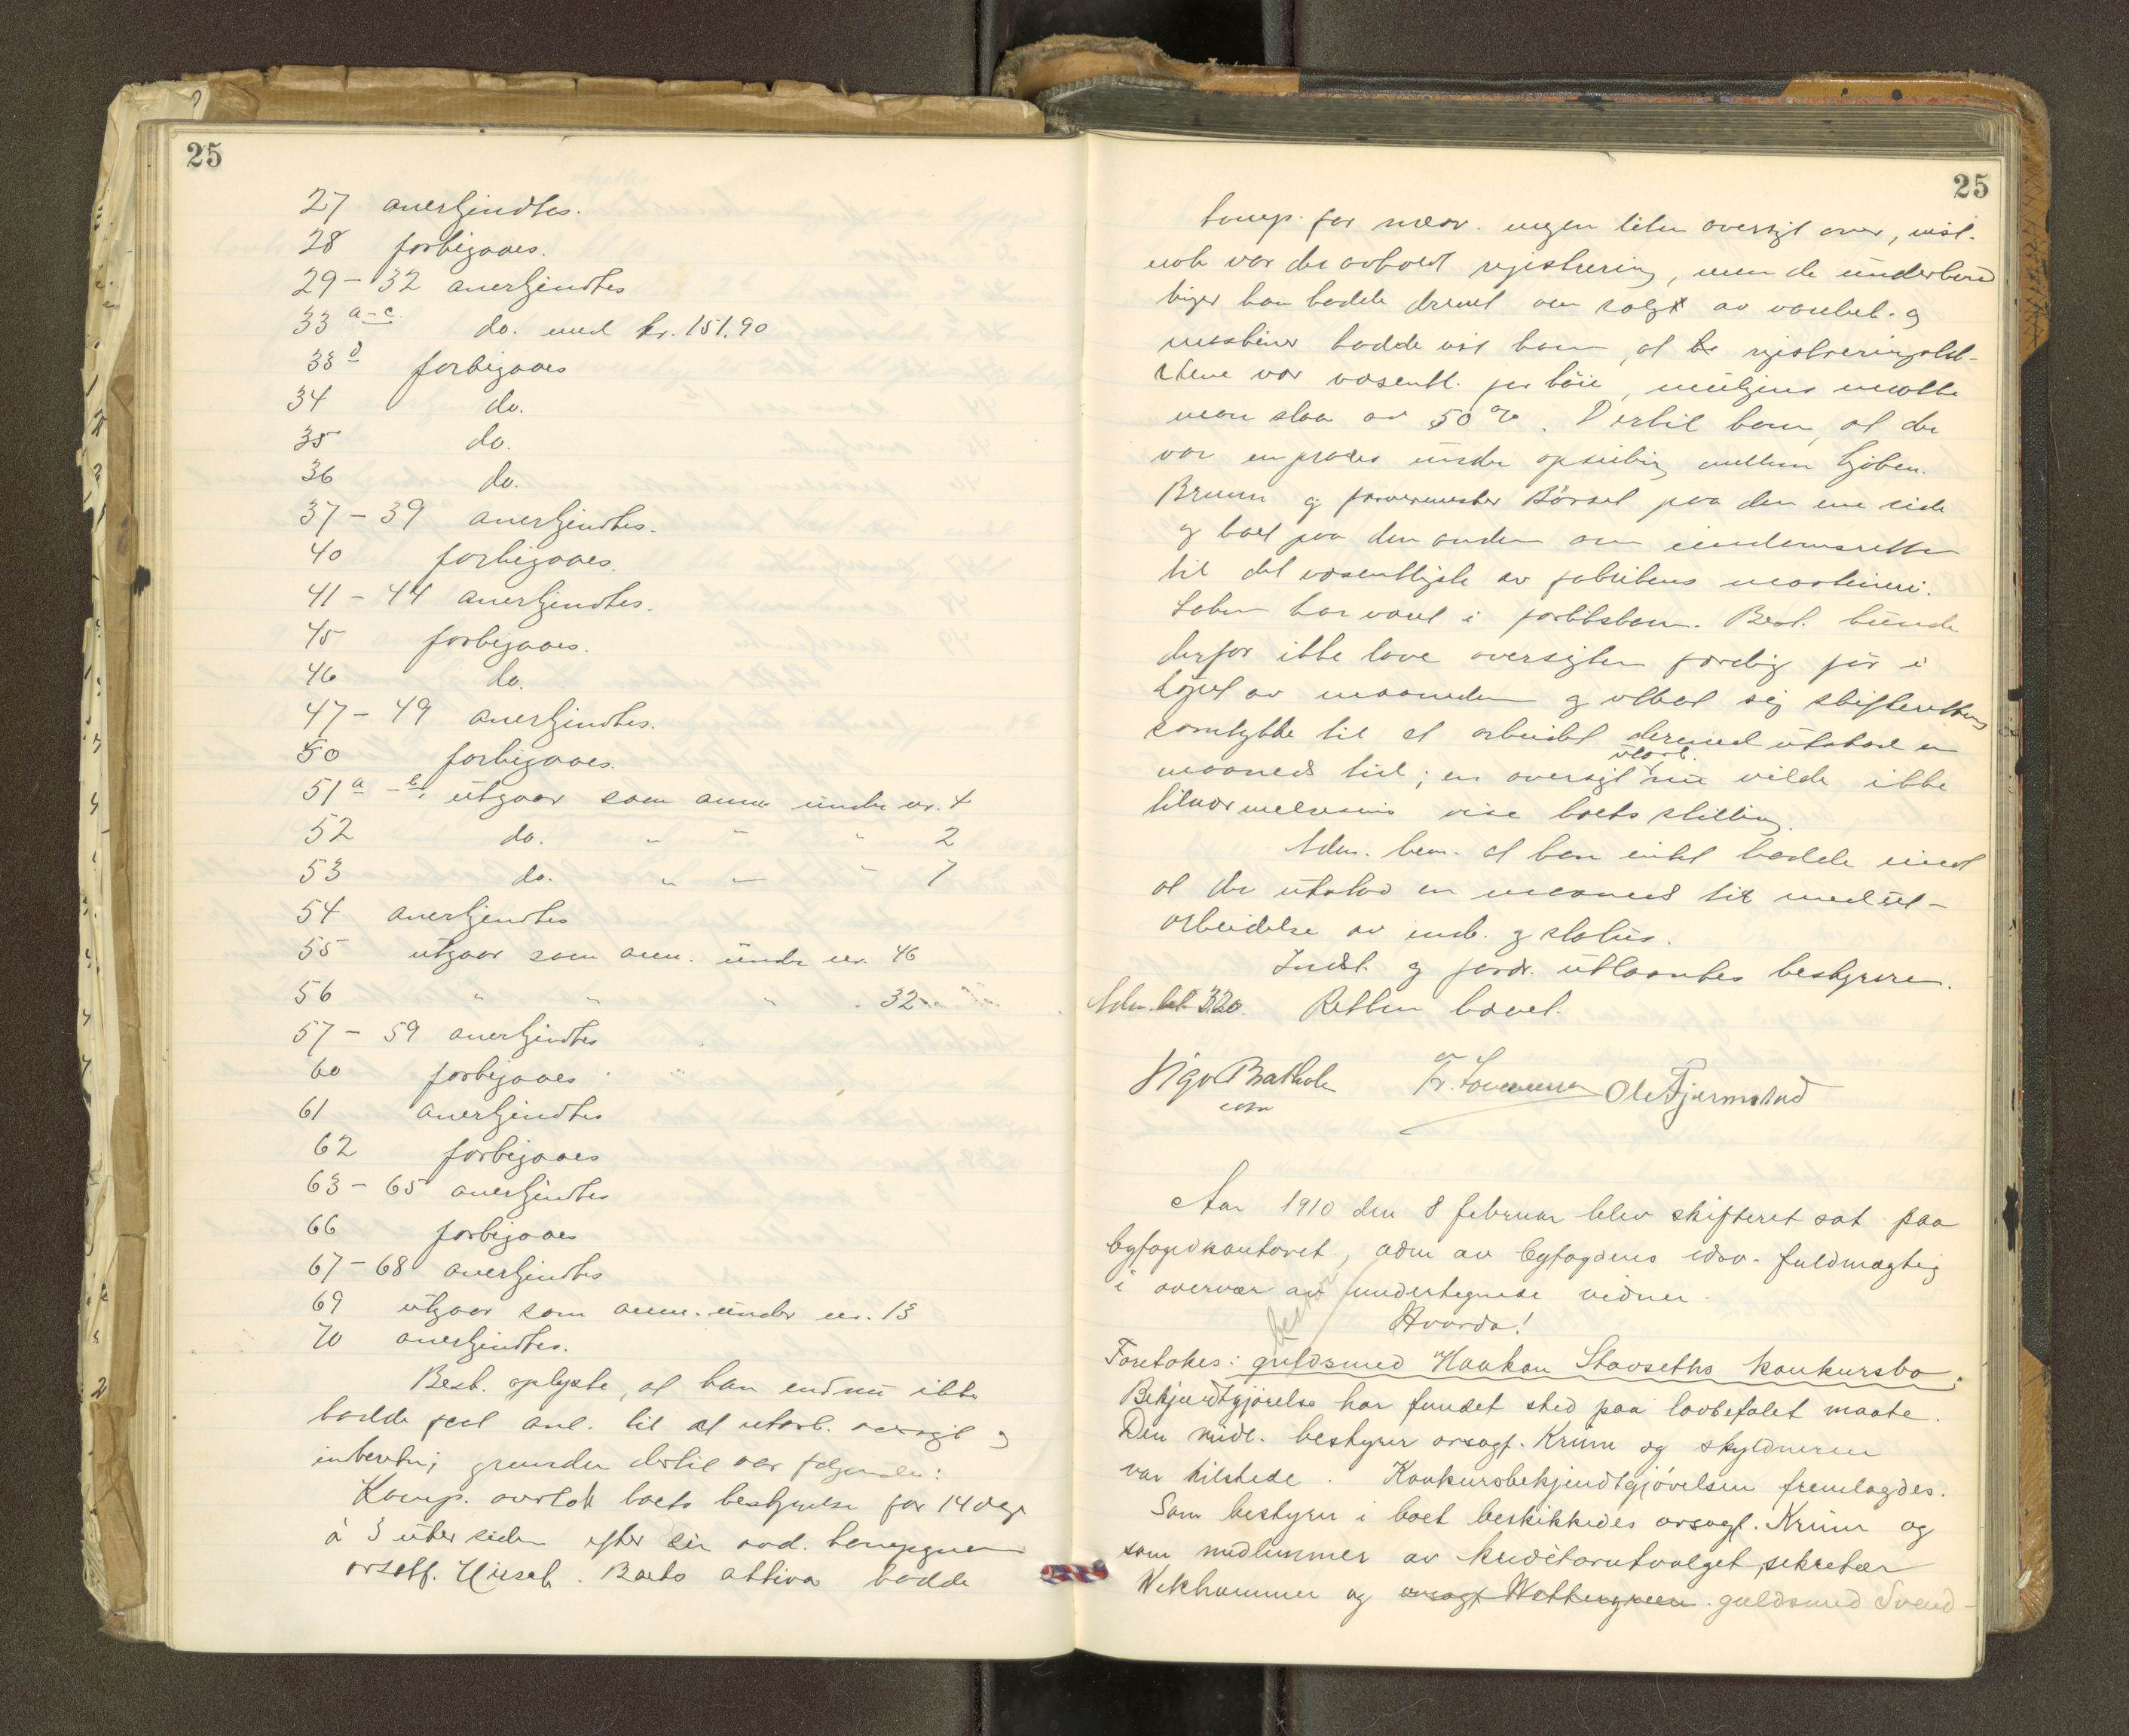 25
27 anerkjendtes.
28 forbigaaes.
29 – 32 anerkjendtes
33 a–c do. med kr. 151.90
33 d forbigaaes
34 do.
35 do.
36 do.
37 – 39 anerkjendtes.
40 forbigaaes.
41 – 44 anerkjendtes.
45 forbigaaes.
46 do.
47 – 49 anerkjendtes.
50 forbigaaes.
51 a – b, utgaar som anm. under nr. 4
52 do. " " " 2
53 do. " " " 7
54 anerkjendtes
55 utgaar som anm. under nr. 46
56 " " " . 32
57 – 59 anerkjendtes
60 forbigaaes
61 anerkjendtes
62 forbigaaes
63 – 65 anerkjendtes
66 forbigaaes
67 – 68 anerkjendtes
69 utgaar som anm. under nr. 13
70 anerkjendtes.
Best. oplyste, at han endnu ikke
hadde faat anl. til at utarb. oversigt og
indberetn; grunden dertil var følgende:
Komp. overtok boets bestyrelse for 14 dage
à 3 uker siden efter sin avd. kompagnon
orsetf. Boets aktiva hadde
25
komp. for nærv. ingen liten oversigt over, vist-
nok var der avholdt registrering, men de underhaand
hadde salgt av varebeh. og
maskiner hadde vist ham, at registreringslist-
stene var væsentl. for høie, muligens maatte
man slaa av 50 %. Dertil kom, at der
var en proces under opseiling mellem kjøbm.
Bruun og farvermester Børsel paa den ene side
og boet paa den anden om eiendomsretten
til det væsentligste av fabrikens maskineri.
Saken har været i forlikskom. Best. kunde
derfor ikke love oversigten færdig før i
løpet av maaneden og utbad sig skifterettens
samtykke til at arbeidet dermed utstod en
maaneds tid; en oversigt utarb. nu vilde ikke
tilnærmelsesvis vise boets stilling.
Adm. bem. at han intet hadde imot
at der utstod en maaneds tid med ut-
arbeidelse av indb. og status.
Indst. og fordr. utlaantes bestyreren.
Adm. bet. 3.20. Retten hævet.
Ole Fjermstad
Aar 1910 den 8 februar blev skifteret sat paa
byfogedkontoret, adm av byfogdens edsv. fuldmægtig
i overvær av undertegnede vidner.
Hvorda!
Foretokes: guldsmed Haakon Stavseths konkursbo.
Bekjendtgjørelse har fundet sted paa lovbefalet maate.
Den midl. bestyrer orsagf. Krüm og skyldneren
var tilstede. Konkursbekjendtgjørelsen fremlagdes.
Som bestyrer i boet beskikkedes orsagf. Krüm og
som medlemmer av kreditorutvalget, sekretær
Wekhammer og orsagf Wettergreen guldsmed Svend-